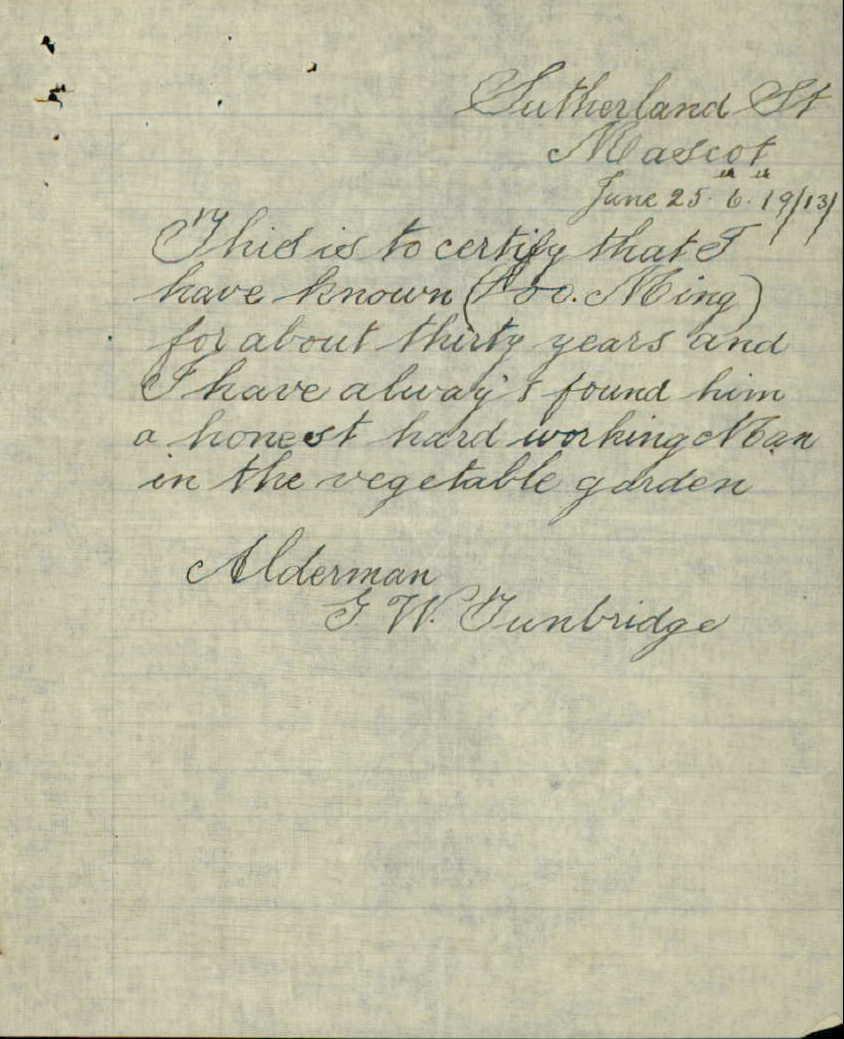 Sutherland St
Mascot
June 25. 6. 19/13/
This is to certify that I
have known (Foo. Ming)
for about thirty years and
I have alway's found him
a honest hard working Man
in the vegetable garden
Alderman
G W. Tunbridge